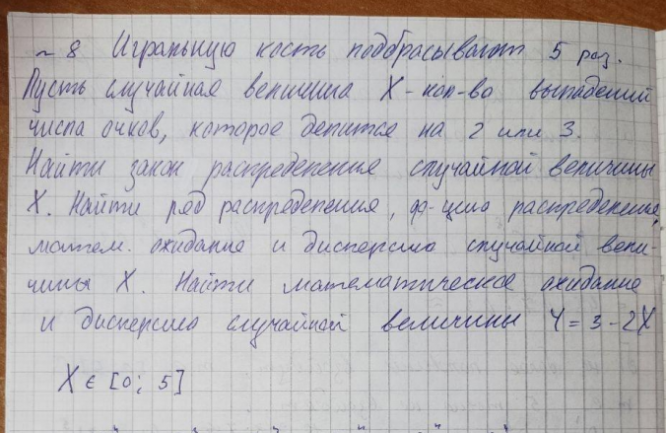 ~ 8 Игральную кость подбрасывают 5 раз.
Пусть случайная величина X - кол-во выпадений
числа очков, которое делится на 2 или 3.
Найти закон распределения случайной величины
X. Найти ряд распределения, ф-цию распределения,
матем. ожидание и дисперсию случайной вели-
чины X. Найти математическое ожидание
и дисперсию случайной величины Y = 3 - 2X
X ∈ [0; 5]